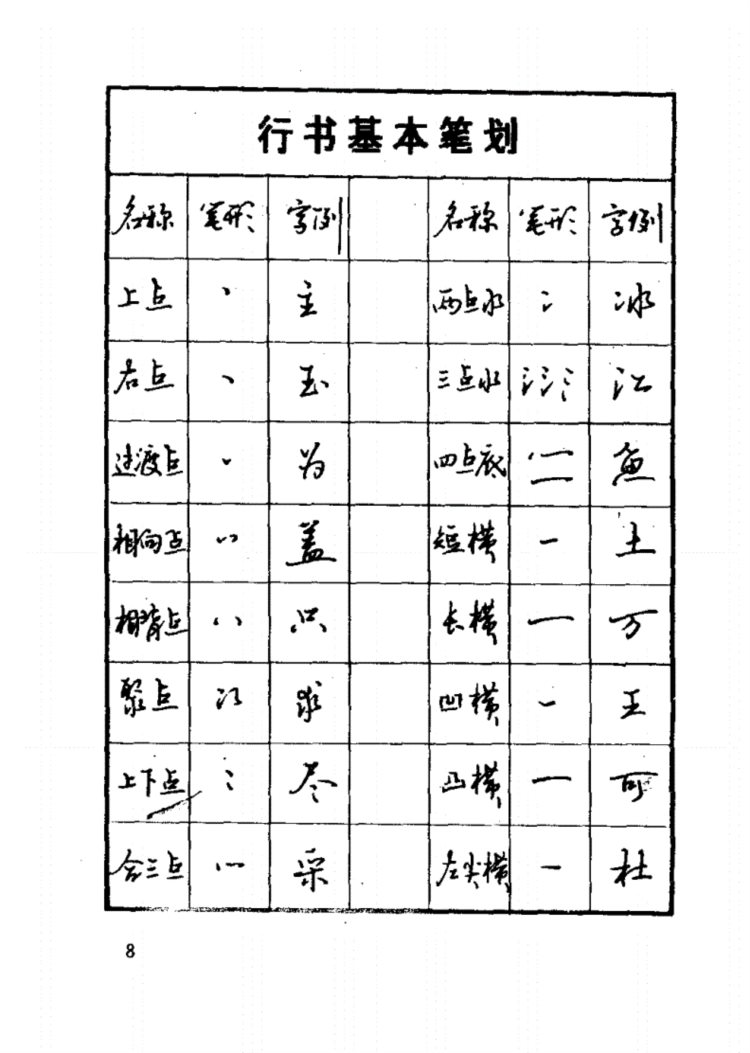 行书基本笔划
名称 笔形 字例 名称 笔形 字例
上点 丶 主 两点水 冫 冰
右点 丶 玉 三点水 氵氵氵 江
过渡点 为 四点底 鱼
相向点 盖 短横 一 土
相背点 只 长横 一 万
聚点 求 凹横 一 王
上下点 尽 凸横 一 可
合三点 采 左尖横 一 杜
8